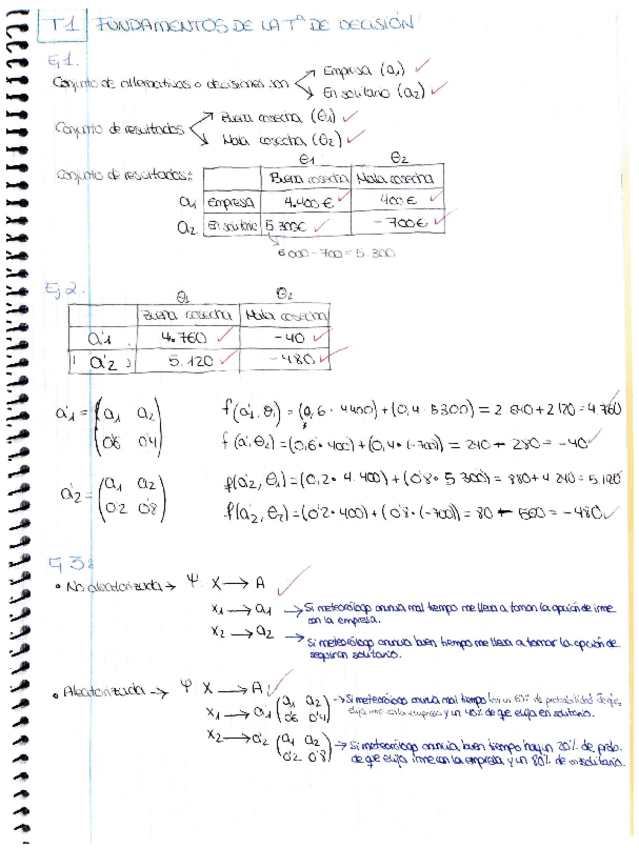 T1 FUNDAMENTOS DE LA Tª DE DECISIÓN
Ej 1.
Conjunto de alternativas o decisiones son → Empresa (a1)
→ En solitario (a2)
Conjunto de resultados → Buena cosecha (θ1)
→ Mala cosecha (θ2)
θ1 θ2
Conjunto de resultados: Buena cosecha Mala cosecha
a1 Empresa 4.400€ 400€
a2 En solitario 5.300€ -700€
6000-700=5.300
Ej 2.
θ1 θ2
Buena cosecha Mala cosecha
a'1 4.760 -40
a'2 5.120 -480
a'1 = (a1 a2
0'6 0'4)
f(a'1, θ1) = (0,6 · 4400) + (0,4 · 5300) = 2 640 + 2 120 = 4.760
f(a'1, θ2) = (0,6 · 400) + (0,4 · (-700)) = 240 - 280 = -40
a'2 = (a1 a2
0'2 0'8)
f(a'2, θ1) = (0,2 · 4.400) + (0'8 · 5 300) = 880 + 4 240 = 5.120
f(a'2, θ2) = (0'2 · 400) + (0'8 · (-700)) = 80 - 560 = -480
Ej 3:
• No aleatorizada → Ψ X → A
x1 → a1 → Si meteorólogo anuncia mal tiempo me lleva a tomar la opción de irme
con la empresa.
x2 → a2 → Si meteorólogo anuncia buen tiempo me lleva a tomar la opción de
seguir en solitario.
• Aleatorizada → Ψ X → A'
x1 → a'1 (a1 a2 → Si meteorólogo anuncia mal tiempo hay un 60% de probabilidad de que
0'6 0'4) elija irme con la empresa y un 40% de que elija en solitario.
x2 → a'2 (a1 a2 → Si meteorólogo anuncia buen tiempo hay un 20% de prob.
0'2 0'8) de que elija irme con la empresa y un 80% de en solitario.